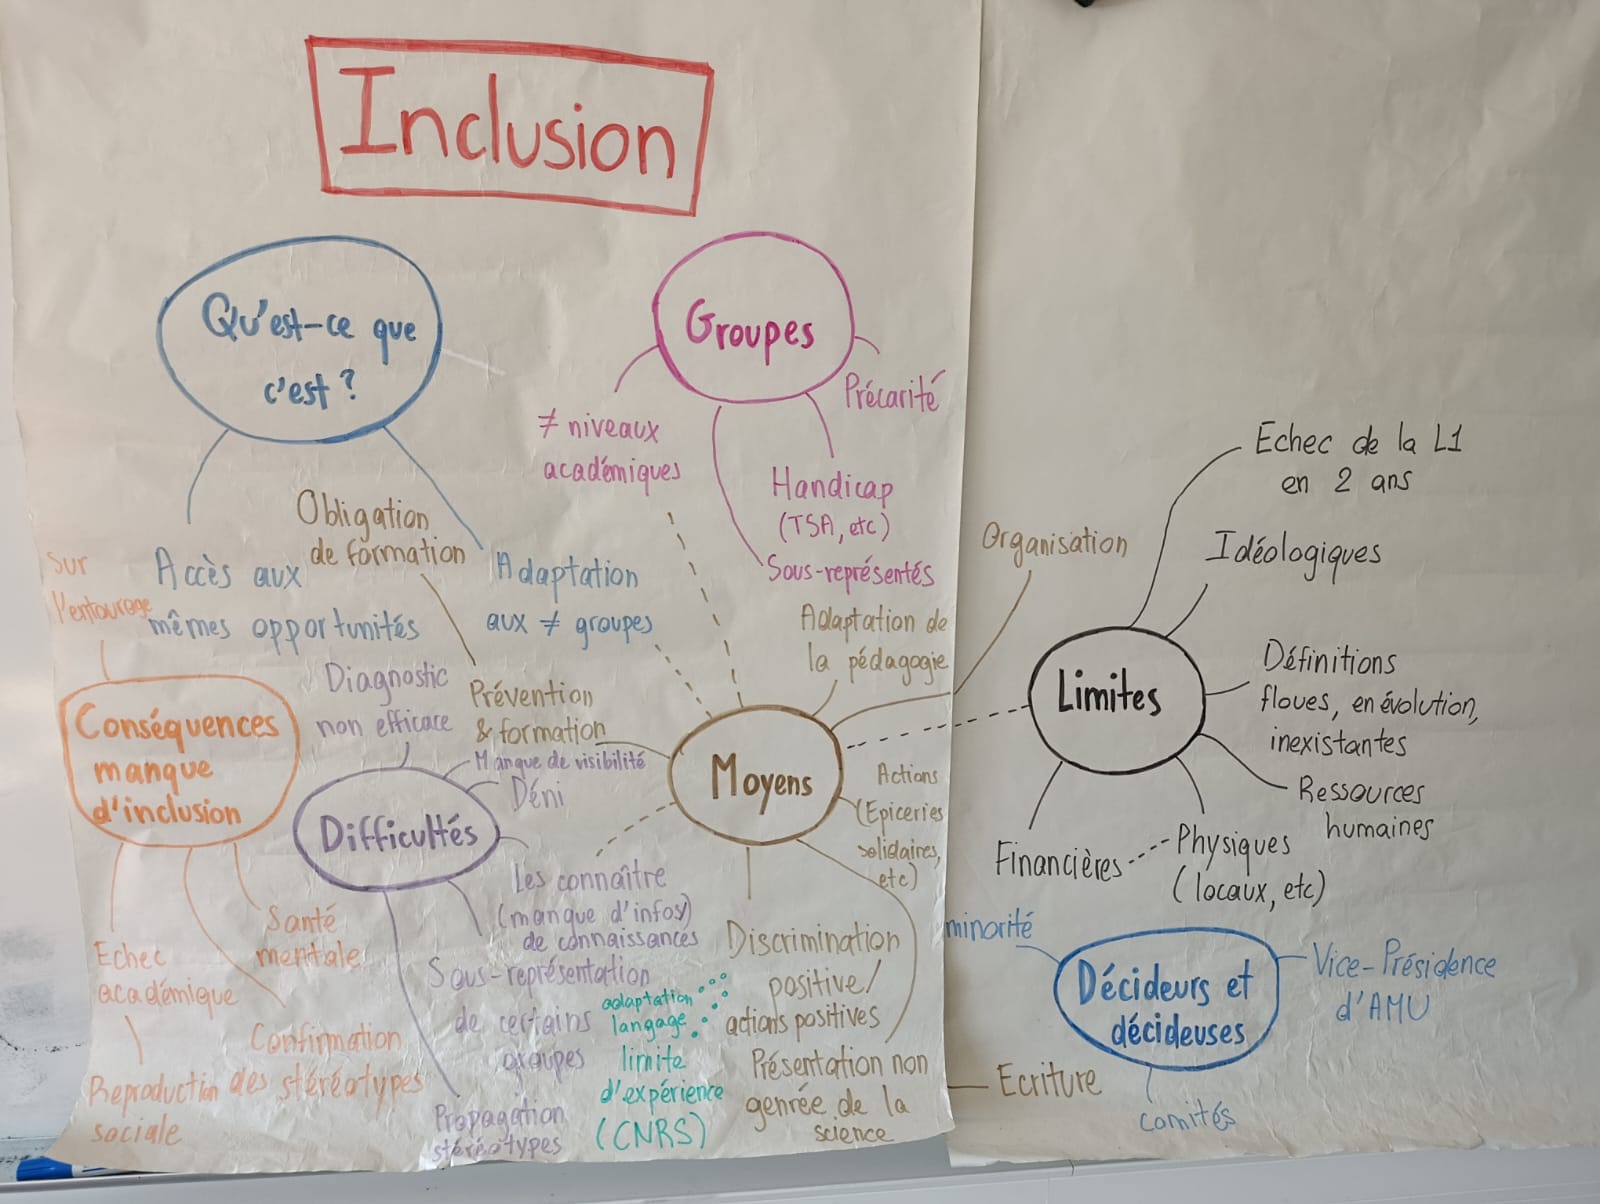 Inclusion
Qu'est-ce que
c'est ?
Accès aux
mêmes opportunités
Adaptation
aux ≠ groupes
Groupes
≠ niveaux
académiques
Précarité
Handicap
(TSA, etc)
Sous-représentés
Obligation
de formation
Prévention
& formation
Adaptation de
la pédagogie
Organisation
Moyens
Actions
(Epiceries
solidaires,
etc)
Discrimination
positive/
actions positives
adaptation
langage
limite
d'expérience
(CNRS)
Présentation non
genrée de la
science
Ecriture
Sur
l'entourage
Conséquences
manque
d'inclusion
Santé
mentale
Echec
académique
Reproduction
sociale
Confirmation
des stéréotypes
Diagnostic
non efficace
Manque de visibilité
Déni
Difficultés
Les connaître
(manque d'infos/)
de connaissances
Sous-représentation
de certains
groupes
Propagation
stéréotypes
Limites
Echec de la L1
en 2 ans
Idéologiques
Définitions
floues, en évolution,
inexistantes
Ressources
humaines
Physiques
(locaux, etc)
Financières
Décideurs et
décideuses
minorité
Vice-Présidence
d'AMU
comités